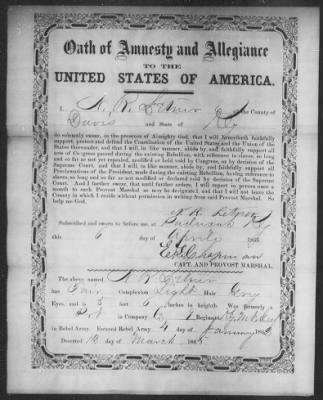 Oath of Amnesty and Allegiance
TO THE
UNITED STATES OF AMERICA.
I, of the County of
Davis and State of Ky
do solemnly swear, in the presence of Almighty God, that I will henceforth faithfully
support, protect and defend the Constitution of the United States and the Union of the
States thereunder, and that I will, in like manner, abide by, and faithfully support all
acts of Congress passed during the existing Rebellion, with reference to slaves, so long
and so far as not yet repealed, modified or held void by Congress, or by decision of the
Supreme Court, and that I will, in like manner, abide by, and faithfully support all
Proclamations of the President, made during the existing Rebellion, having reference to
slaves, so long and so far as not modified or declared void by decision of the Supreme
Court. And I further swear, that until further orders, I will report in person once a
month to such Provost Marshal as may be designated, and that I will not leave the
County in which I reside without permission in writing from said Provost Marshal. So
help me God.
Subscribed and sworn to before me, at Paducah Ky
this 6 day of April 1865
E. Chapman
CAPT. AND PROVOST MARSHAL.
The above named
has Fair Complexion Light Hair Grey
Eyes, and is 5 feet 6 inches in heighth. Was formerly
in Company Regiment
in Rebel Army. Entered Rebel Army 4 day of January 186
Deserted 12 March 1865